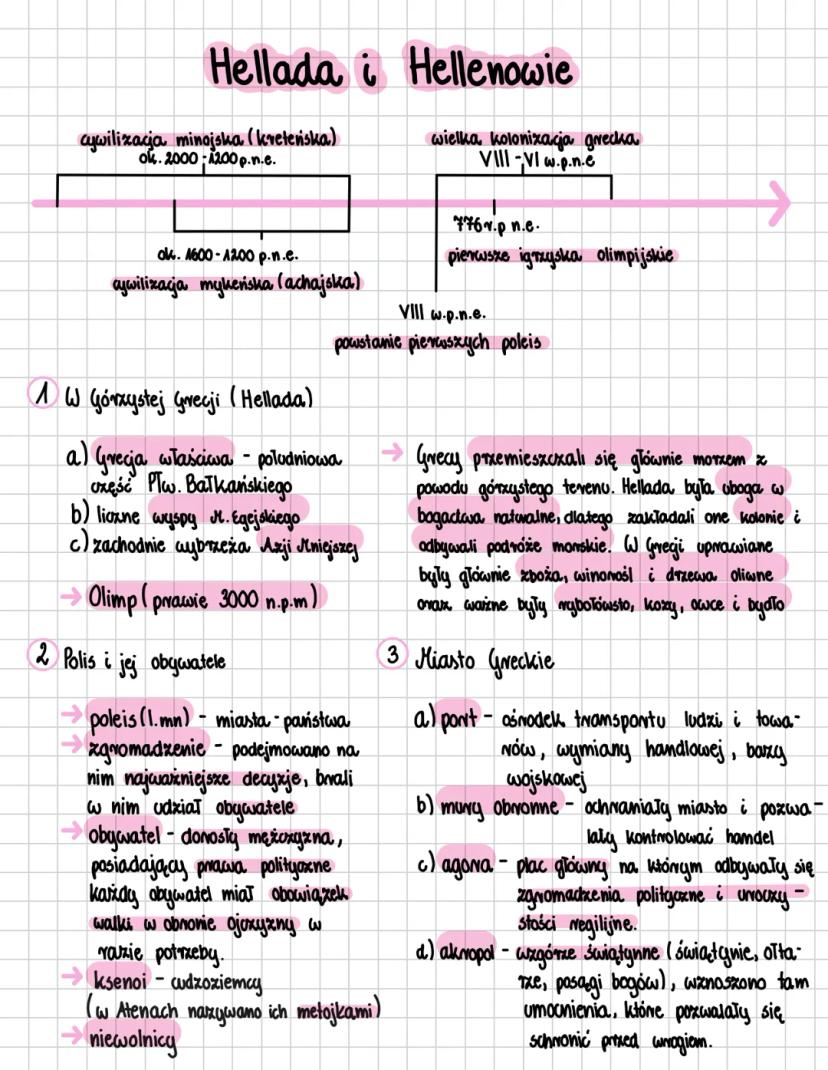 Hellada i Hellenowie
cywilizacja minojska (kreteńska)
ok. 2000 - 1200 p.n.e.
wielka kolonizacja grecka
VIII - VI w.p.n.e
776 r.p n.e.
pierwsze igrzyska olimpijskie
ok. 1600 - 1200 p.n.e.
cywilizacja mykeńska (achajska)
VIII w.p.n.e.
powstanie pierwszych poleis
1 W Górzystej Grecji (Hellada)
a) Grecja właściwa - południowa
część Płw. Bałkańskiego
b) liczne wyspy M. Egejskiego
c) zachodnie wybrzeża Azji Mniejszej
→ Olimp (prawie 3000 n.p.m)
→ Grecy przemieszczali się głównie morzem z
powodu górzystego terenu. Hellada była uboga w
bogactwa naturalne, dlatego zakładali one kolonie i
odbywali podróże morskie. W Grecji uprawiane
były głównie zboża, winorośl i drzewa oliwne
oraz ważne były rybołówsto, kozy, owce i bydło
2 Polis i jej obywatele
→ poleis (l.mn) - miasta - państwa
→ zgromadzenie - podejmowano na
nim najważniejsze decyzje, brali
w nim udział obywatele
→ obywatel - dorosły mężczyzna,
posiadający prawa polityczne
każdy obywatel miał obowiązek
walki w obronie Ojczyzny w
razie potrzeby.
→ ksenoi - cudzoziemcy
(w Atenach nazywano ich metojkami)
→ niewolnicy
3 Miasto Greckie
a) port - ośrodek transportu ludzi i towa-
rów, wymiany handlowej, bazy
wojskowej
b) mury obronne - ochraniały miasto i pozwa-
lały kontrolować handel
c) agora - plac główny na którym odbywały się
zgromadzenia polityczne i uroczy-
stości regilijne.
d) akropol - wzgórze świątynne (świątynie, ołta-
rze, posągi bogów), wznoszono tam
umocnienia, które pozwalały się
schronić przed wrogiem.